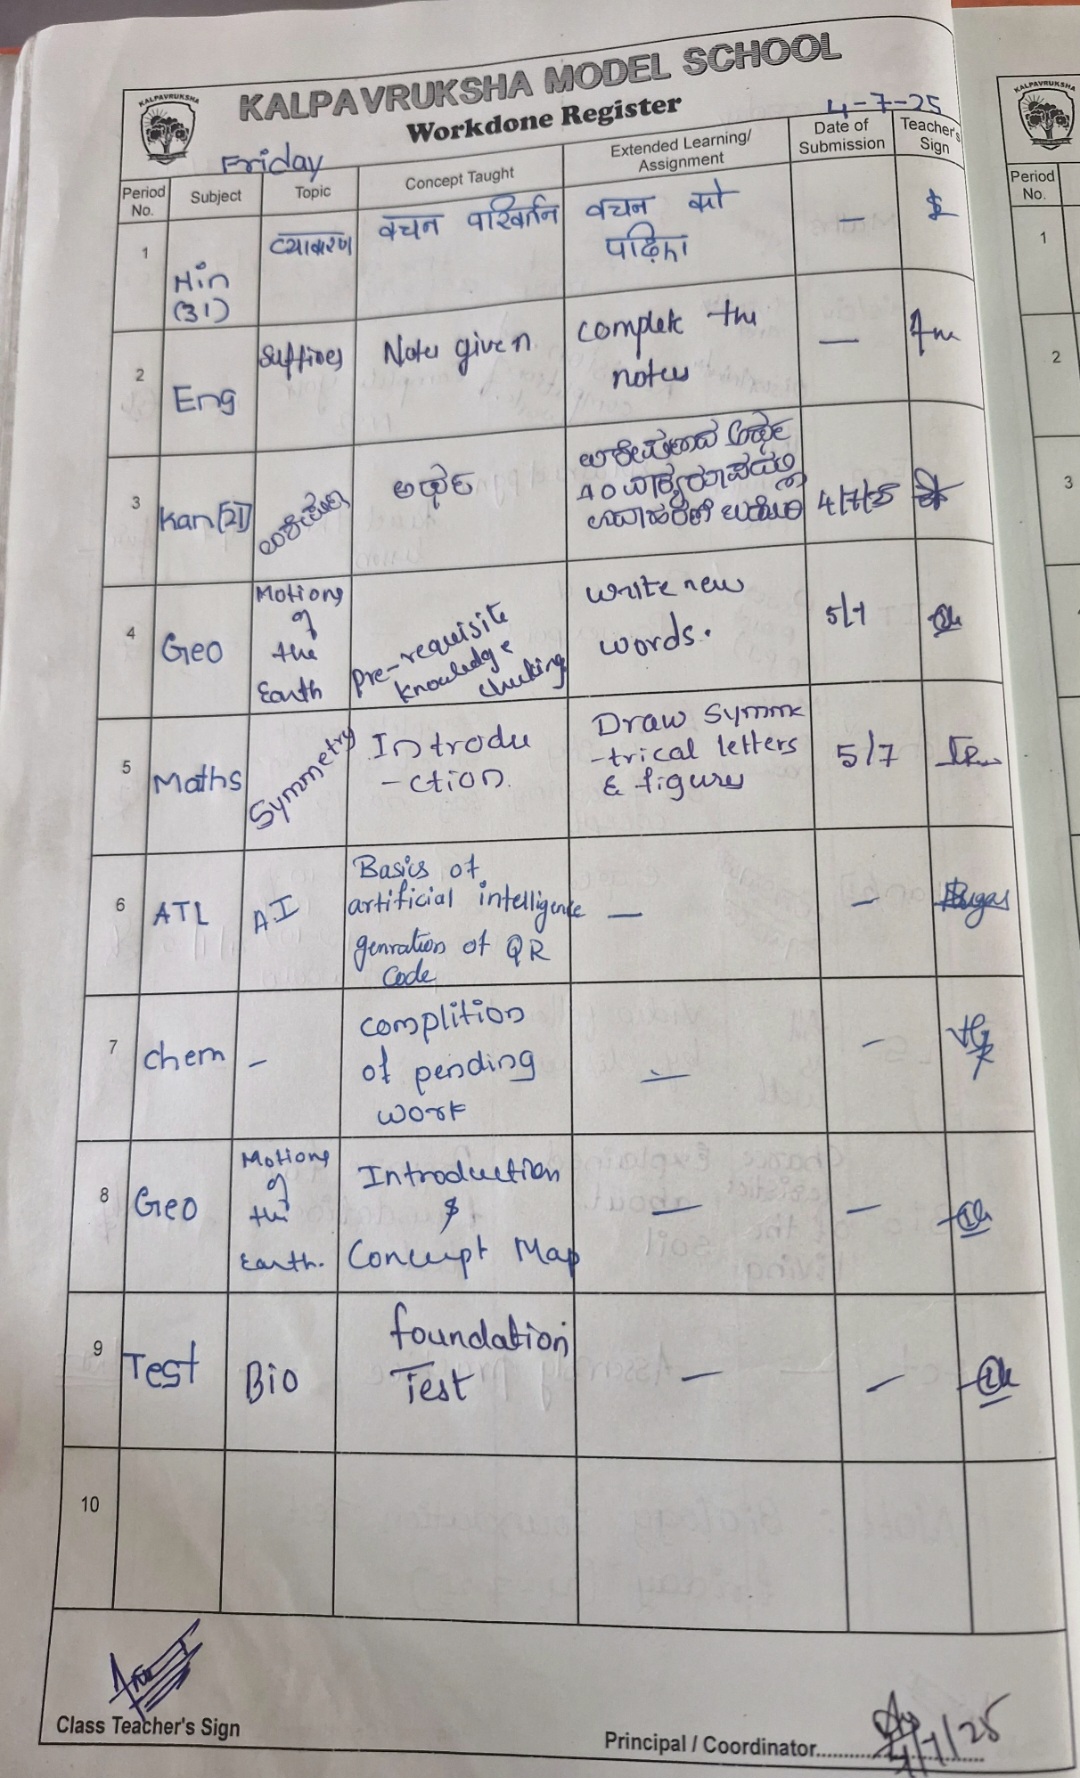 KALPAVRUKSHA
KALPAVRUKSHA MODEL SCHOOL
Workdone Register
4-7-25
Friday
Period No.
Subject
Topic
Concept Taught
Extended Learning/ Assignment
Date of Submission
Teacher's Sign
1
Hin (31)
व्याकरण
वचन परिवर्तन
वचन को
पढ़िए।
—
2
Eng
Suffixes
Notes given
complete the
notes
—
3
Kan [21]
ಅರ್ಥ
4/7/25
4
Geo
Motions
of
the
Earth
Pre-requisite
knowledge
checking
write new
words.
5/7
5
Maths
Symmetry
Introdu
-ction.
Draw Symme
-trical letters
& figures
5/7
6
ATL
AI
Basics of
artificial intelligence
genration of QR
Code
—
—
7
chem
-
complition
of pending
work
—
—
8
Geo
Motions
of
the
Earth.
Introduction
&
Concept Map
—
—
9
Test
Bio
foundation
Test
—
—
10
Class Teacher's Sign
Principal / Coordinator
4/7/25
KALPAVRUKSHA
Period No.
1
2
3